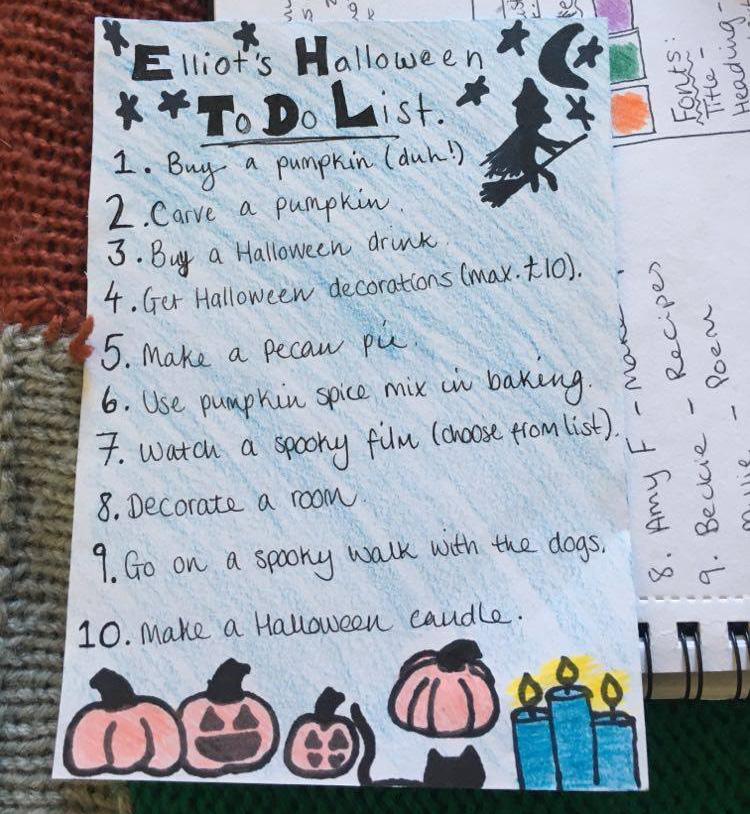 Elliot's Halloween
To Do List.
1. Buy a pumpkin (duh!)
2. Carve a pumpkin.
3. Buy a Halloween drink.
4. Get Halloween decorations (max. £10).
5. Make a pecan pie.
6. Use pumpkin spice mix in baking.
7. Watch a spooky film (choose from list).
8. Decorate a room.
9. Go on a spooky walk with the dogs.
10. Make a Halloween candle.
Fonts:
Title -
Heading -
8. Amy F -
9. Beckie - Recipes
- Poem